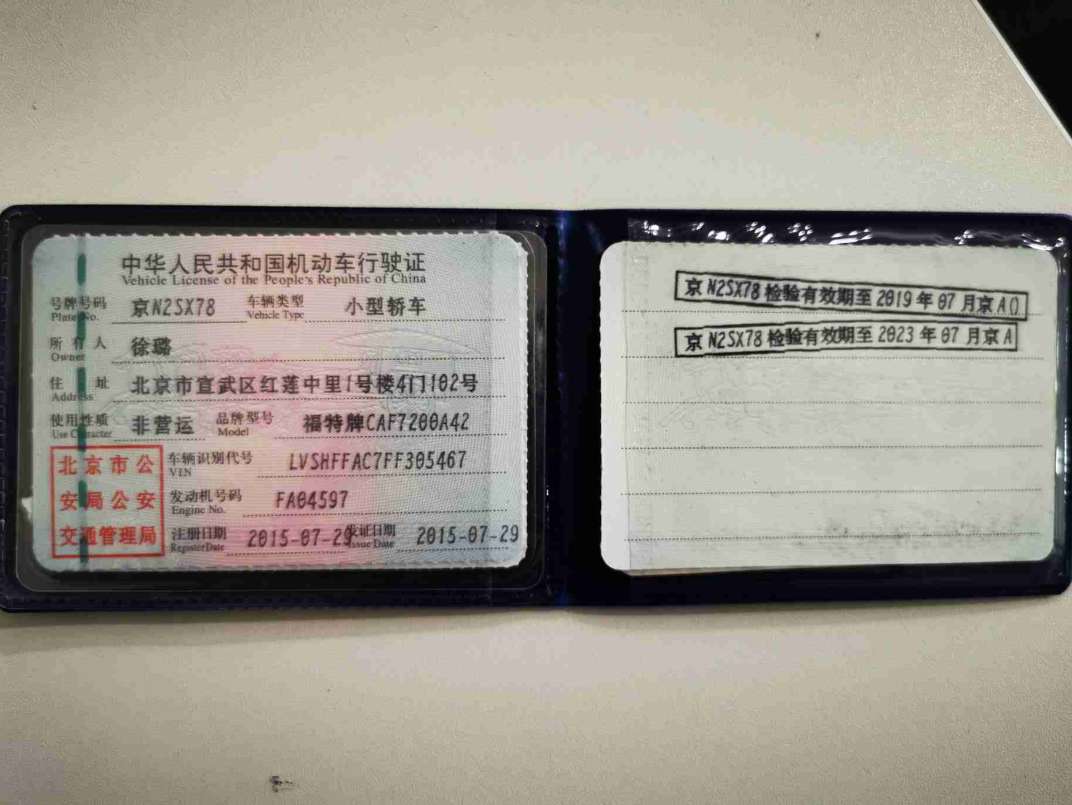 中华人民共和国机动车行驶证
Vehicle License of the People's Republic of China
号牌号码 京N2SX78 车辆类型 小型轿车
Plate No. Vehicle Type
所有人 徐璐
Owner
住址 北京市宣武区红莲中里1号楼4门1102号
Address
使用性质 非营运 品牌型号 福特牌CAF7200A42
Use Character Model
北京市公
安局公安
交通管理局
车辆识别代号 LVSHFFAC7FF305467
VIN
发动机号码 FA04597
Engine No.
注册日期 2015-07-29 发证日期 2015-07-29
Register Date Issue Date
京N2SX78检验有效期至2019年07月京A()
京N2SX78检验有效期至2023年07月京A